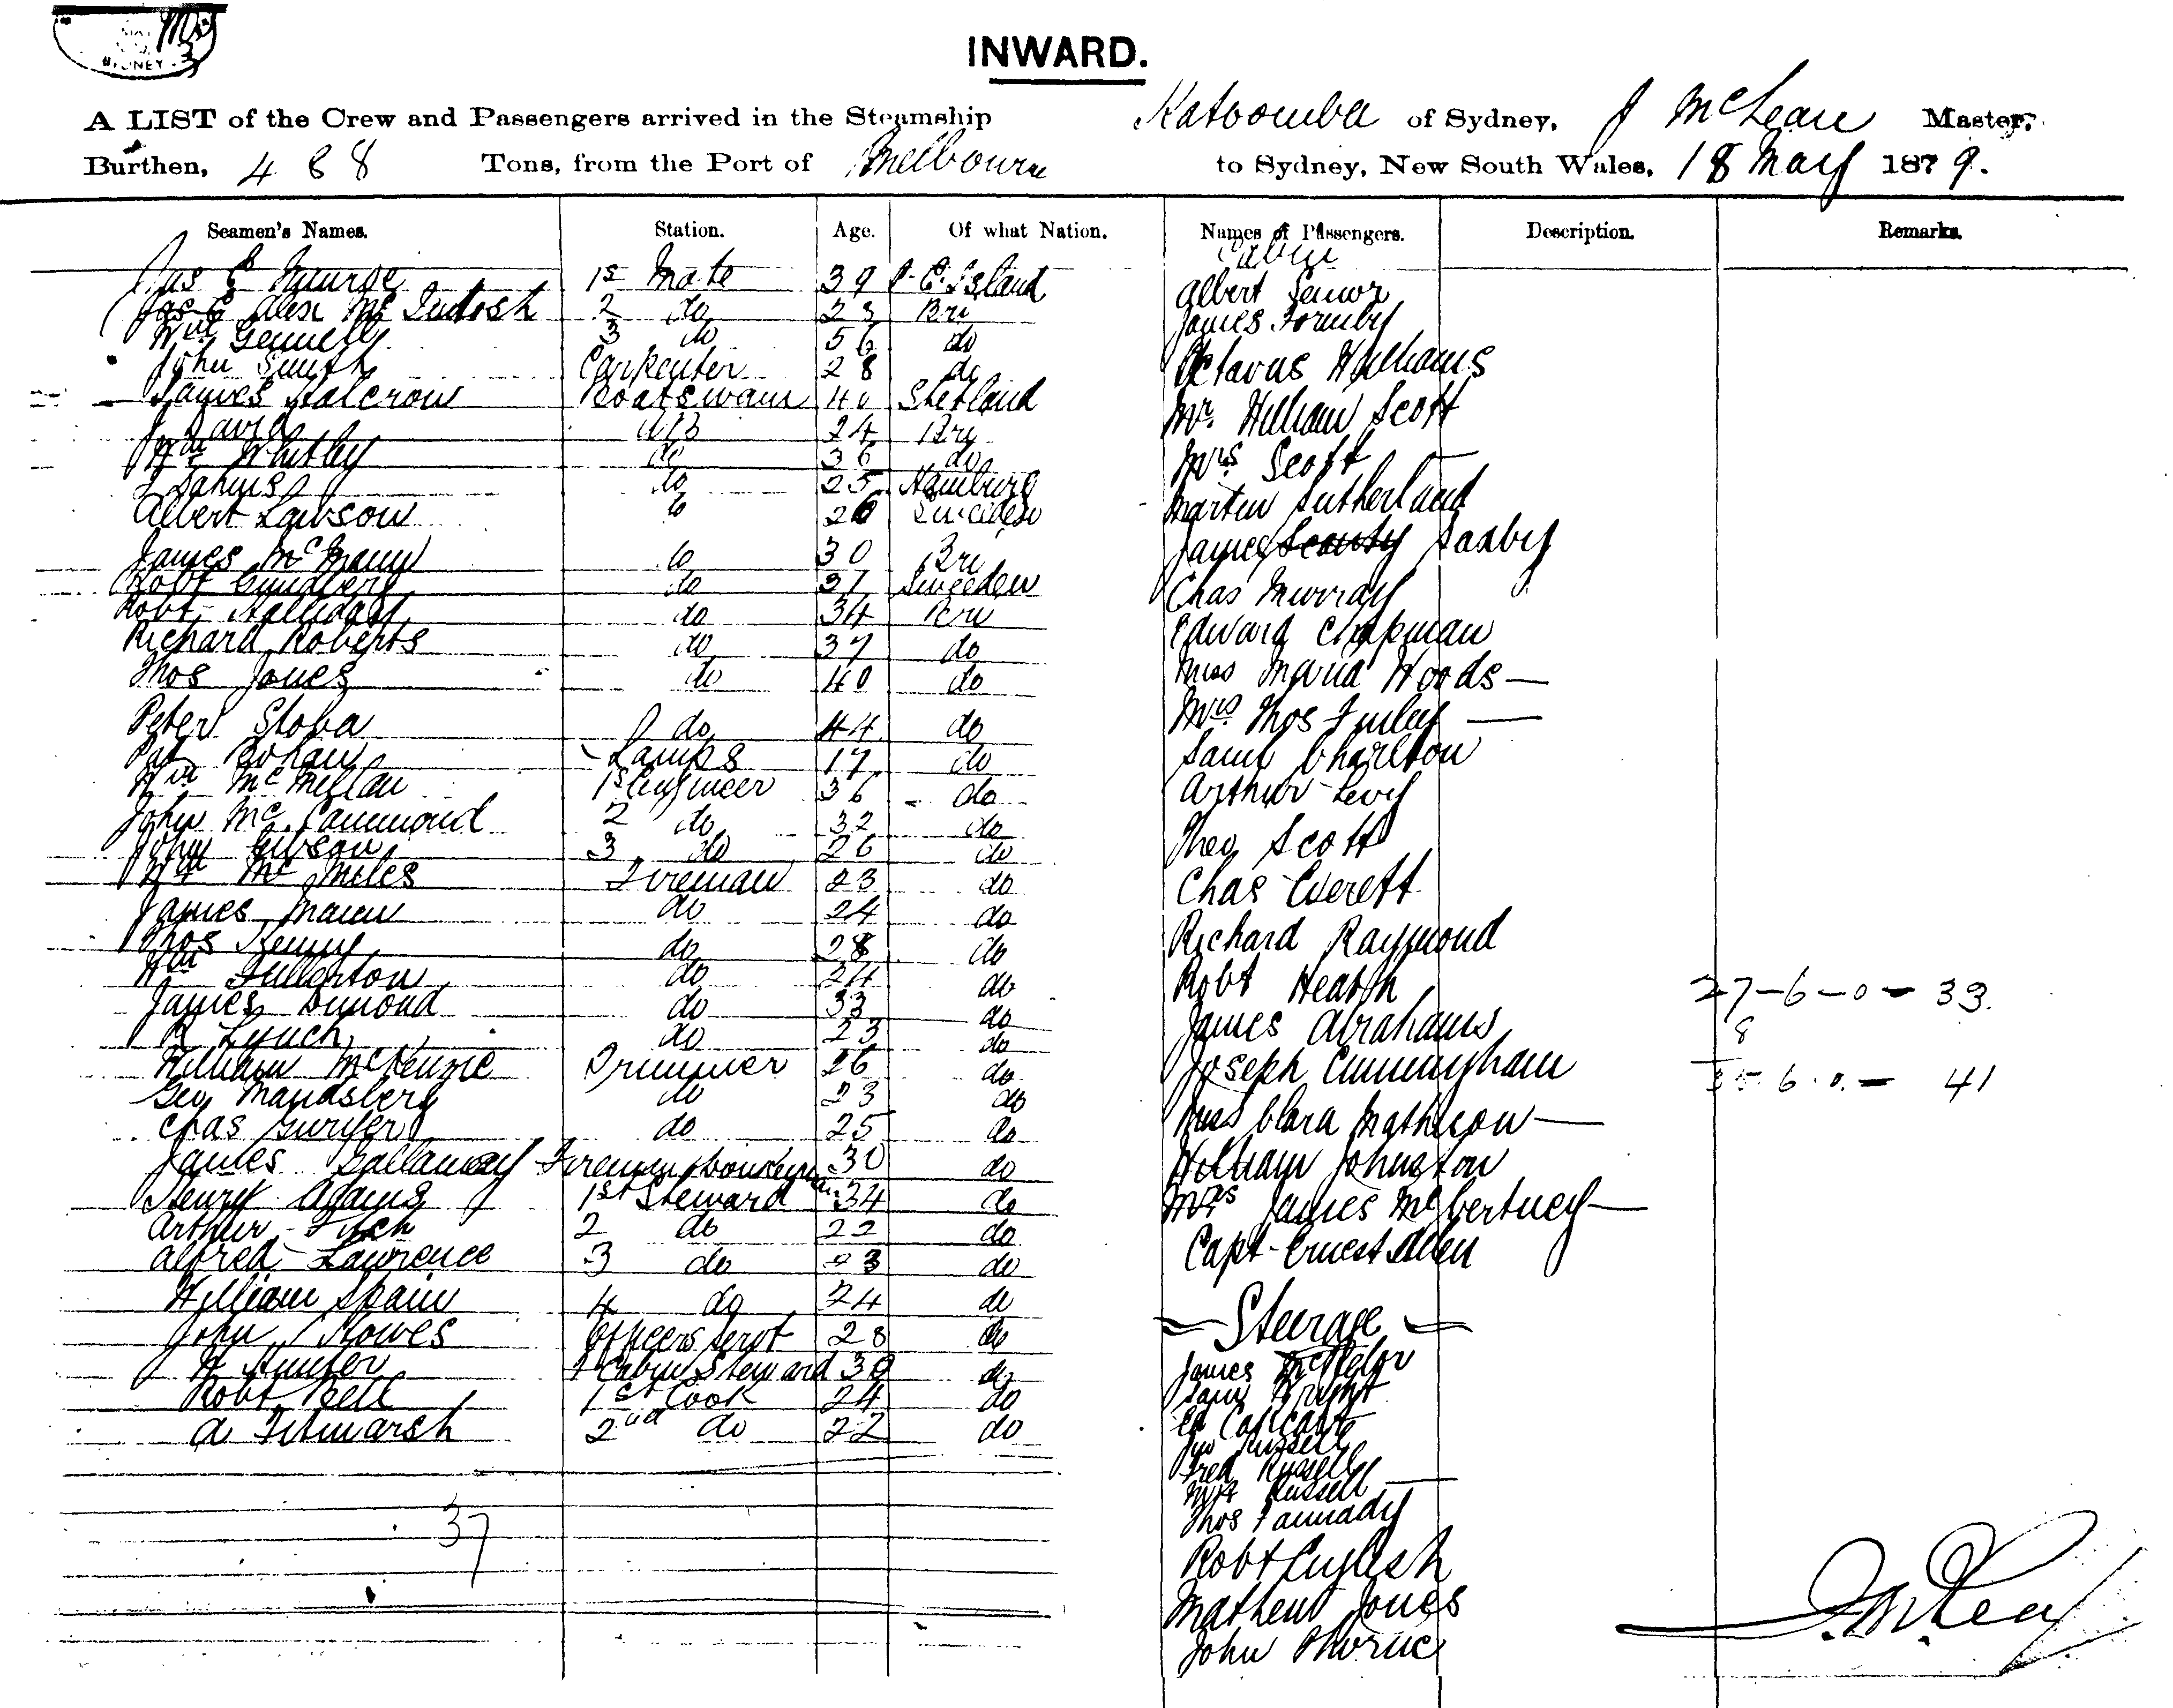 SYDNEY
INWARD.
A LIST of the Crew and Passengers arrived in the Steamship Katoomba of Sydney, J McLean Master,
Burthen, 488 Tons, from the Port of Melbourne to Sydney, New South Wales, 18 May 1879.
Seamen's Names. Station. Age. Of what Nation. Names of Passengers. Description. Remarks.
Cabin
Jas C Munroe 1st Mate 39 P. E. Island
Jas C Alex Mc Intosh 2 do 23 Bri
Wm Gemmell 3 do 56 do
John Smith Carpenter 28 do
James Halcrow Boatswain 40 Shetland
J David AB 24 Bri
Wm Whitley do 36 do
do 25 Hamburg
Albert Lawson do 26 Sweeden
James McMann do 30 Bri
Robt Lundberg do 31 Sweeden
Robt Halliday do 34 Bri
Richard Roberts do 37 do
Thos Jones do 40 do
Peter Sloba do 44 do
Pat Lamps 17 do
Wm McMillan 1st Engineer 36 do
John McCammond 2 do 32 do
John Gibson 3 do 26 do
Wm Mc Miles Fireman 23 do
James Mann do 24 do
Thos Kenny do 28 do
Wm Fullerton do 24 do
James Dimond do 33 do
R Lynch do 23 do
William McKenzie Trimmer 26 do
Geo Mandsberg do 23 do
Chas do 25 do
James Gallaway Fireman & Donkeyman 30 do
Henry Adams 1st Steward 34 do
Arthur Fitch 2 do 22 do
Alfred Lawrence 3 do 23 do
William Spain 4 do 24 do
John Clowes Officers Servt 28 do
H Hunter Cabin Steward 30 do
Robt Bell 1st Cook 24 do
A Titmarsh 2nd do 22 do
37
Albert Senior
James Formby
Octavus Williams
Mr. William Scott
Mrs Scott —
Martin Sutherland
James Saxby
Chas Murray
Edward Chapman
Miss Maria Woods —
Mrs. Thos Finley —
Saml Charlton
Arthur Levy
Theo Scott
Chas Everett
Richard Raymond
Robt Heath
James Abrahams
Joseph Cunningham
Miss Clara Mathieson —
William Johnston
Mrs James McCertney —
Capt Ernest Allen
— Steerage —
James
Saml Wright
Ed Cathcart
Jno Russell
Fred Russell
Mrs Russell —
Thos Fannady
Robt English
Mathew Jones
John Thorne
27-6-0- 33.
8
35 6.0.- 41
J. McLean